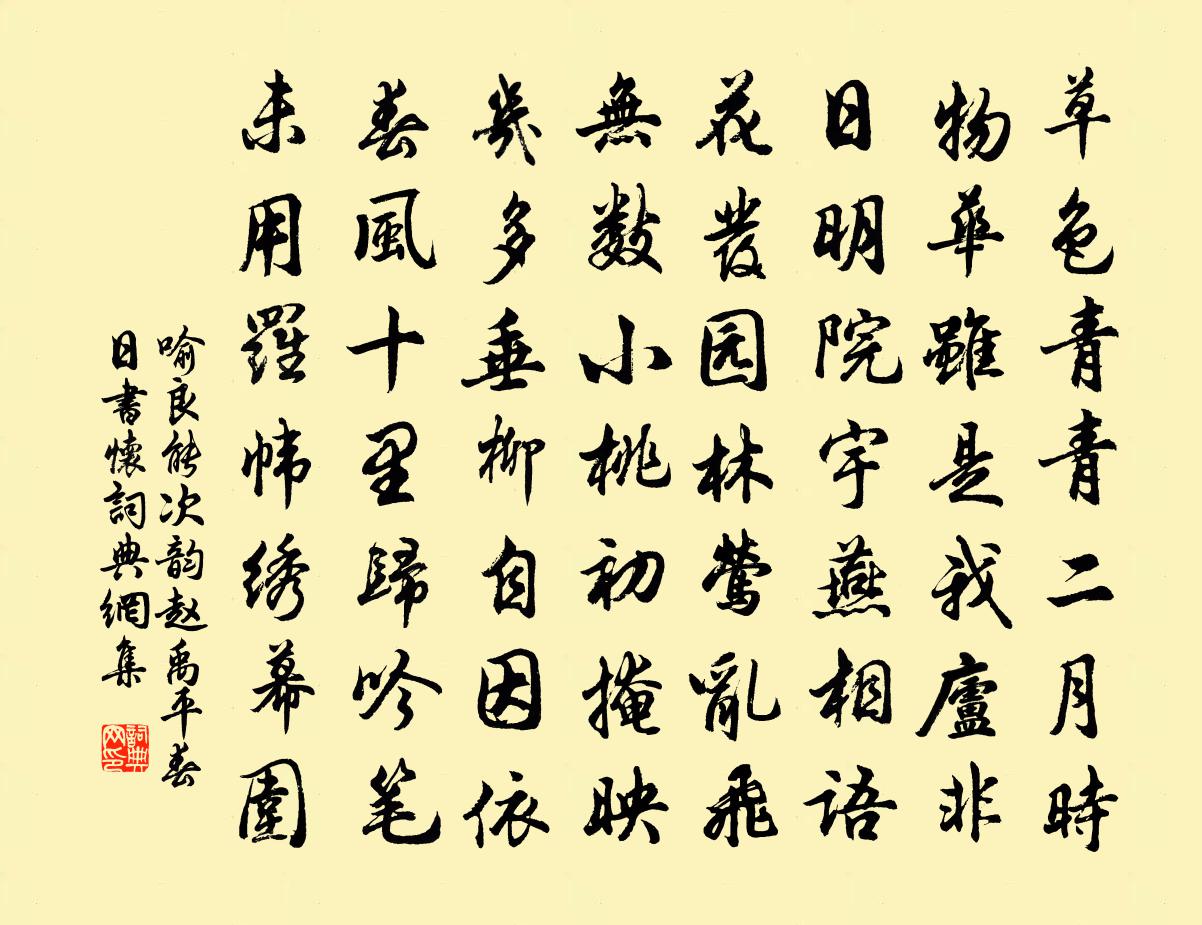 草色青青二月時
物華雖是我廬非
日明院宇燕相語
花發园林鶯亂飛
無數小桃初掩映
幾多垂柳自因依
春風十里歸吟笔
未用羅帏绣幕圍
喻良能次韵赵禹平春
日書懷詞典網集
詞典网印